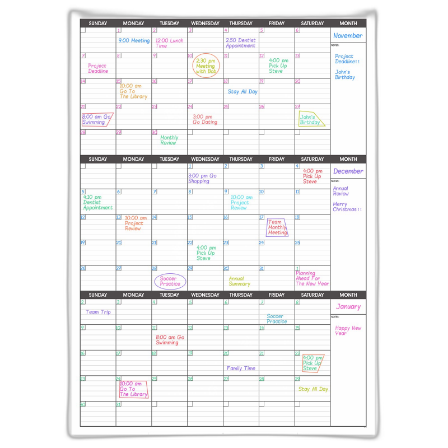 SUNDAY MONDAY TUESDAY WEDNESDAY THURSDAY FRIDAY SATURDAY MONTH
November
9:00 Meeting
12:00 Lunch
Time
2:50 Dentist
Appointment
Project
Deadline
2:30 pm
Meeting
with Bob
4:00 pm
Pick Up
Steve
Project
Deadline!
John's
Birthday
10:00 am
Go To
The Library
Stay All Day
8:00 am Go
Swimming
3:00 pm
Go Dating
John's
Birthday
Monthly
Review
SUNDAY MONDAY TUESDAY WEDNESDAY THURSDAY FRIDAY SATURDAY MONTH
December
3:00 pm Go
Shopping
4:00 pm
Pick Up
Steve
Annual
Review
Merry
Christmas!!
Dentist
Appointment
10:00 am
Project
Review
10:30 am
Project
Review
Team
Monthly
Meeting
4:00 pm
Pick Up
Steve
Soccer
Practice
Annual
Summary
Planning
Ahead For
The New Year
SUNDAY MONDAY TUESDAY WEDNESDAY THURSDAY FRIDAY SATURDAY MONTH
January
Team Trip
Soccer
Practice
Happy New
Year
8:00 am Go
Swimming
Family Time
4:00 pm
Pick Up
Steve
10:00 am
Go To
The Library
Stay All Day